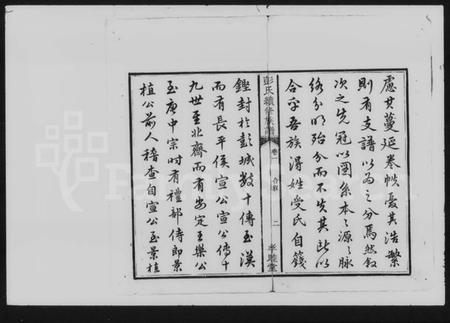 慮其蔓延卷帙憂其浩繁
則有支譜以為之分焉然敘
次之先冠以圖系本之源之脈
絡分明殆分而不失其此以
合乎吾族得姓受氏自籛
彭氏續修族譜 卷一 合序 二 孝睦堂
鏗封於彭城數十傳至漢
而有長平侯宣公宣公傳十
九世至北齊而有安定王樂公
至唐中宗時有禮部侍郎景
植公前人稽查自宣公至景植